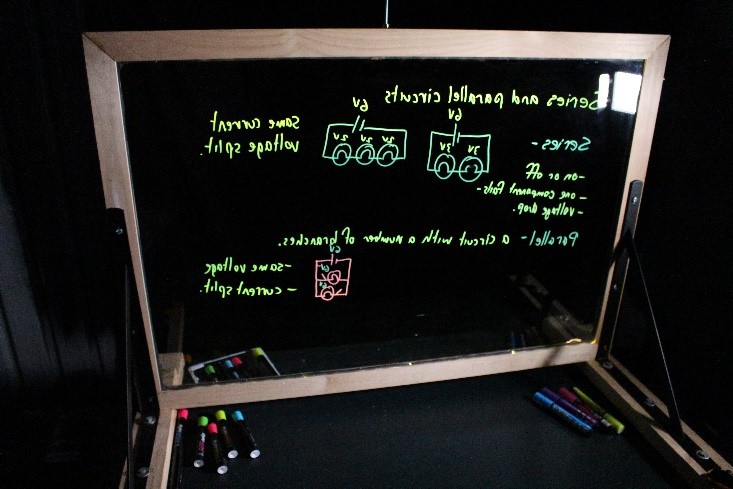 Series and parallel circuits
Series -
-on or off
- one component fails-
- voltage drop.
6V
3V 3V
6V
2V 2V 2V
same current
voltage split.
Parallel - a circuit with a number of branches.
6V
6V
6V
-same voltage
- current split.